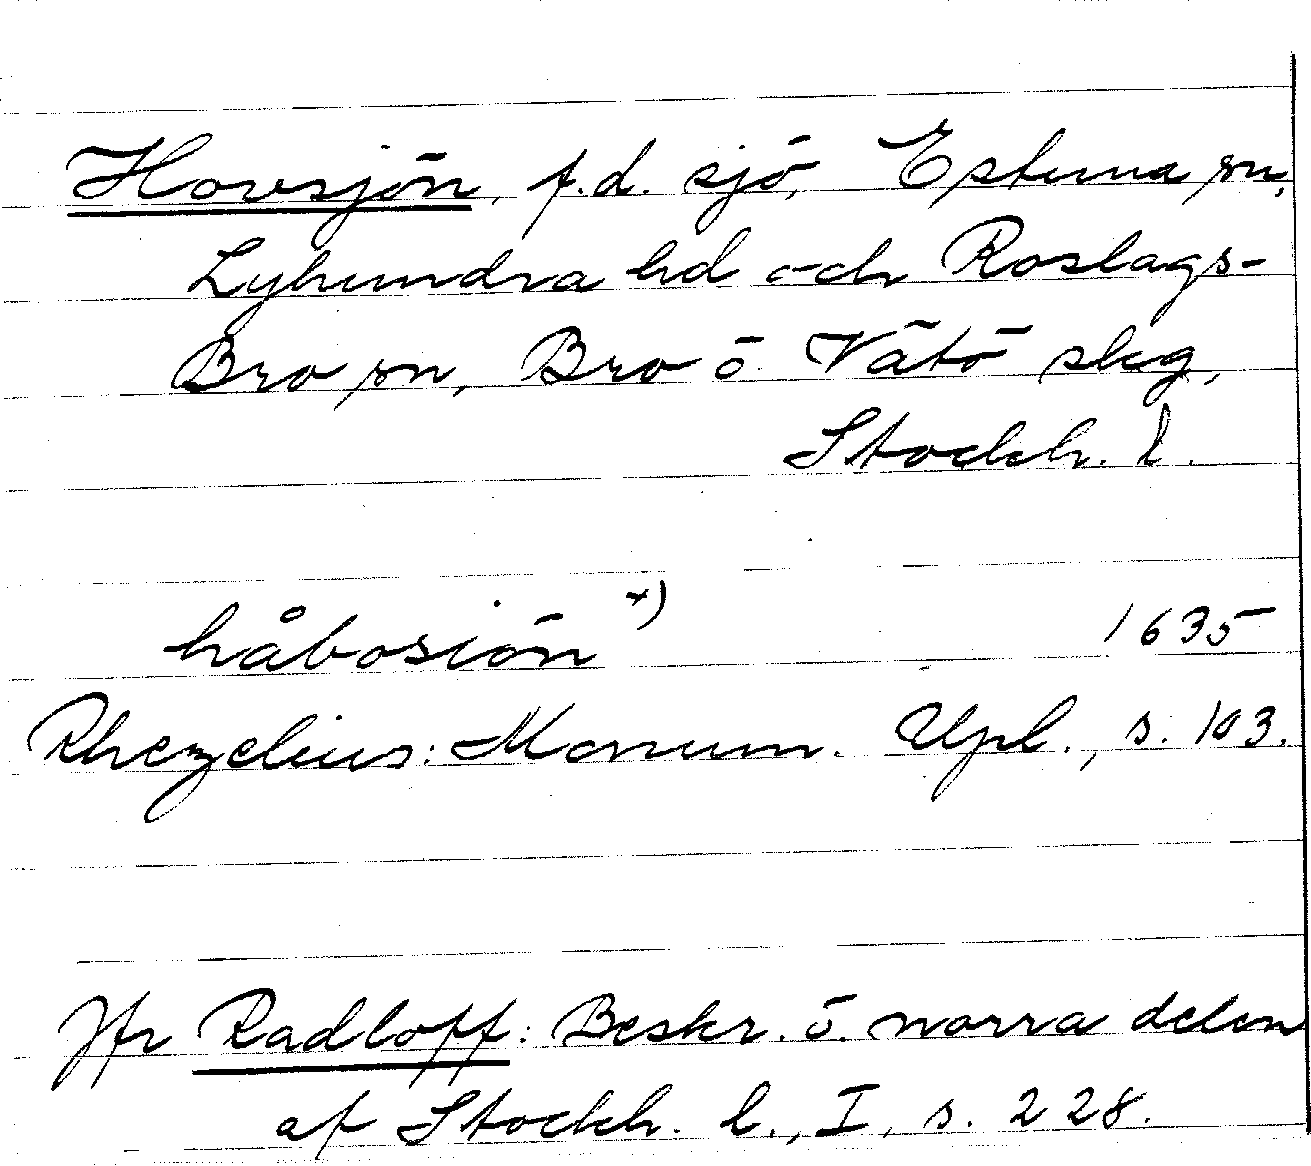 Hovsjön, f.d. sjö, Estuna sn,
Lyhundra hd och Roslags-
Bro sn, Bro o. Vätö skg,
Stockh. l.
håbosiön x) 1635
Rhezelius: Monum. Upl., s. 103.
Jfr Radloff: Beskr. ö. norra delen
af Stockh. l., I, s. 228.